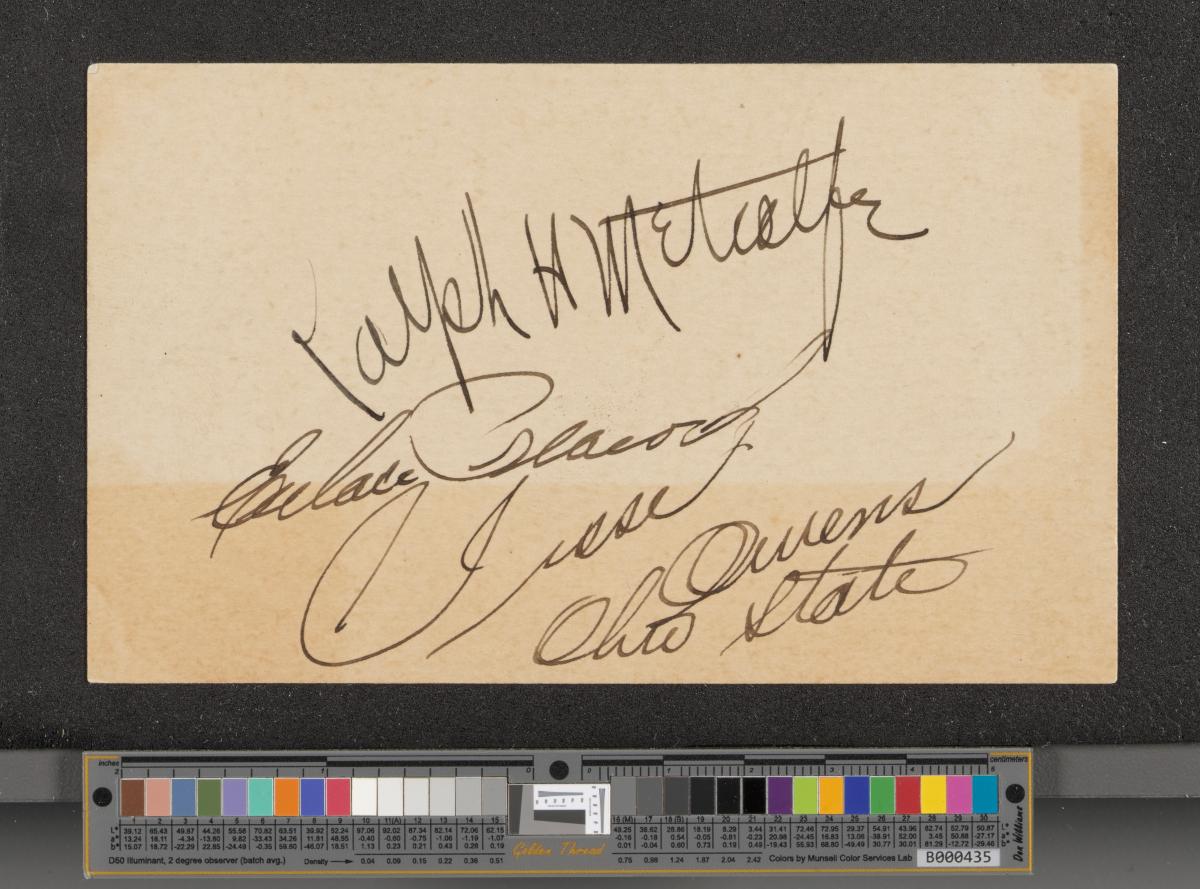 Ralph H Metcalfe
Eulace Peacock
Jesse Owens
Ohio State
inches
centimeters
1 2 3 4 5 6 7 8 9 10 11(A) 12 13 14 15
16(M) 17 18(B) 19 20 21 22 23 24 25 26 27 28 29 30
L* 39.12 65.43 49.87 44.26 55.56 70.82 63.51 39.92 52.24 97.06 92.02 87.34 82.14 72.06 62.15
a* 13.24 18.11 -4.34 -13.80 9.82 -33.43 34.26 11.81 48.55 -0.40 -0.60 -0.75 -1.06 -1.19 -1.07
b* 15.07 18.72 -22.29 22.85 -24.49 -0.35 59.60 -46.07 18.51 1.13 0.23 0.21 0.43 0.28 0.19
49.25 38.62 28.86 18.19 8.29 3.44 31.41 72.46 72.95 29.37 54.91 43.96 82.74 52.79 50.87 L*
-0.16 -0.18 0.54 -0.05 -0.81 -0.23 20.98 -24.45 16.83 13.06 -38.91 52.00 3.45 50.88 -27.17 a*
0.01 -0.04 0.60 0.73 0.19 0.49 -19.43 55.93 68.80 -49.49 30.77 30.01 81.29 -12.72 -29.46 b*
D50 Illuminant, 2 degree observer (batch avg.) Density 0.04 0.09 0.15 0.22 0.36 0.51
Golden Thread
0.75 0.98 1.24 1.87 2.04 2.42 Colors by Munsell Color Services Lab
B000435
Don Williams